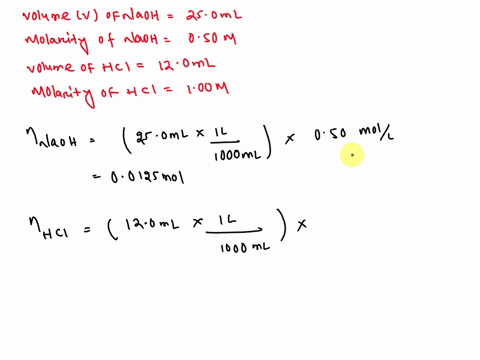 volume (V) of NaOH = 25.0mL
Molarity of NaOH = 0.50 M
volume of HCl = 12.0mL
Molarity of HCl = 1.00M
ηNaOH = (25.0mL × 1L/1000mL) × 0.50 mol/L
= 0.0125mol
ηHCl = (12.0mL × 1L/1000 mL) ×